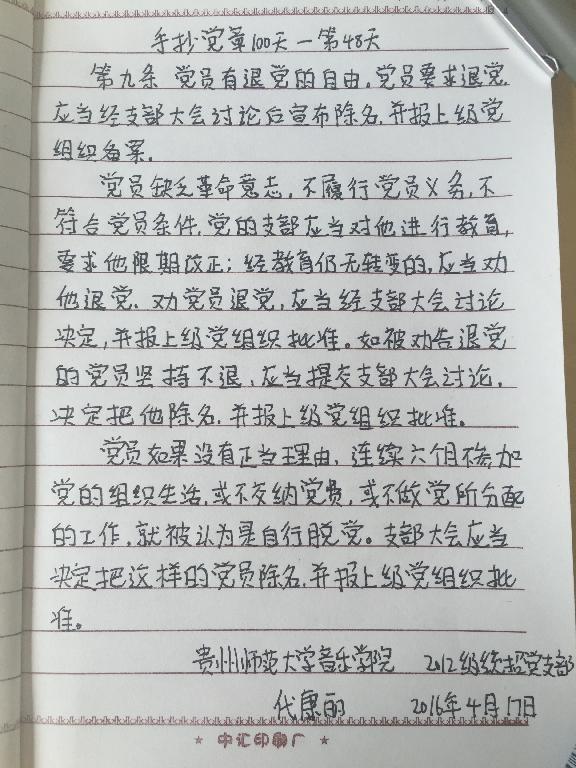 手抄党章100天—第48天
第九条 党员有退党的自由。党员要求退党,
应当经支部大会讨论后宣布除名,并报上级党
组织备案。
党员缺乏革命意志,不履行党员义务,不
符合党员条件,党的支部应当对他进行教育,
要求他限期改正;经教育仍无转变的,应当劝
他退党。劝党员退党,应当经支部大会讨论
决定,并报上级党组织批准。如被劝告退党
的党员坚持不退,应当提交支部大会讨论,
决定把他除名,并报上级党组织批准。
党员如果没有正当理由,连续六个月不参加
党的组织生活,或不交纳党费,或不做党所分配
的工作,就被认为是自行脱党。支部大会应当
决定把这样的党员除名,并报上级党组织批
准。
贵州师范大学音乐学院 2012级 党支部
代康丽 2016年4月17日
★ 中汇印刷厂 ★